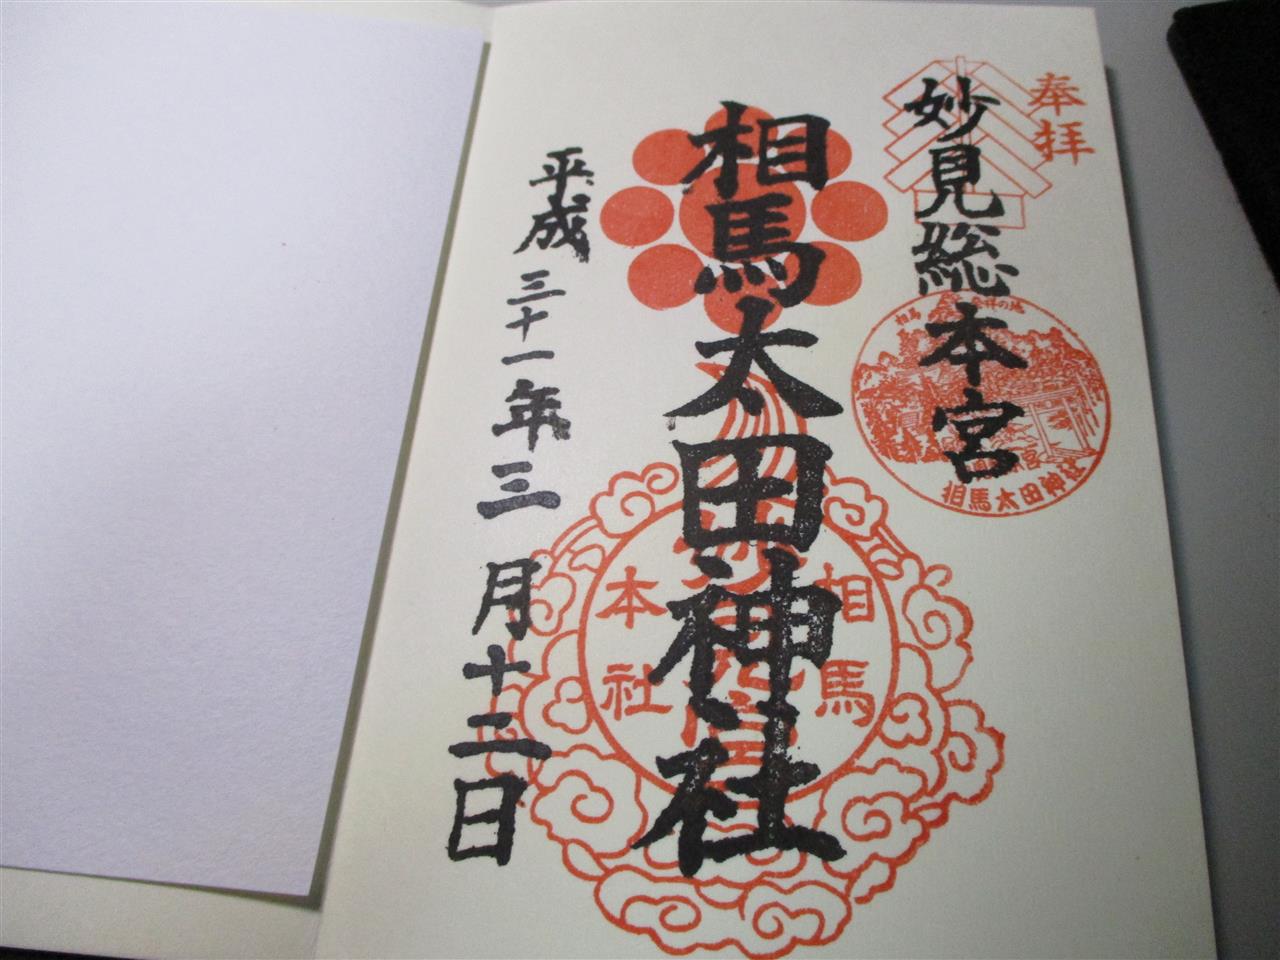 奉拝
妙見総本宮
相馬太田神社
平成三十一年三月十二日
相馬
発祥の地
相馬太田神社
相馬
本社